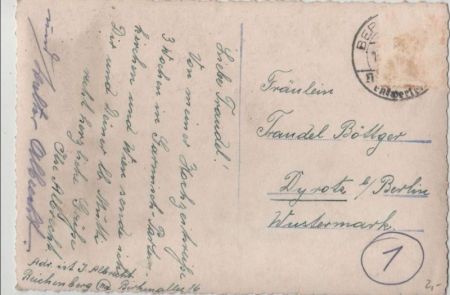 Liebe Traudel!
Von meiner Hochzeitsreise
3 Wochen in Garmisch-Parten-
kirchen und Wien sende ich
Dir und Deiner lb. Mutti
recht herzliche Grüße
Ilse Albrecht
und Walter Albrecht.
Adr. ist J Albrecht
Reichenberg
16
BER
Fräulein
Traudel Böttger
Dyrotz b/Berlin
Wustermark.
1
2,-